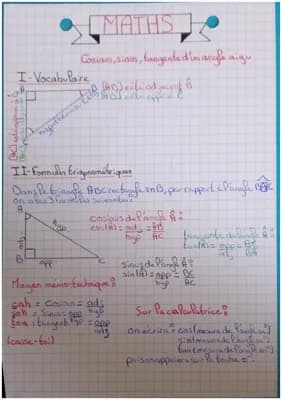 MATHS
Cosinus, sinus, tangente d'un angle aigu
I - Vocabulaire
A
B
hypoténuse
C
[AB] côté adjacent Â
[BC] côté opposé Â
II - Formules trigonométriques
Dans le triangle ABC rectangle en B, par rapport à l'angle BAC
on a les 3 formules suivantes :
A
adj
hyp
B
opp
C
cosinus de l'angle Â :
cos(Â) = adj = AB
hyp AC
tangente de l'angle Â :
tan(Â) = opp = BC
adj AB
Sinus de l'angle Â :
sin(Â) = opp = BC
hyp AC
Moyen mémo-technique :
cah = Cosinus = adj
hyp
soh = Sinus = opp
hyp
toa = tangente = opp
adj
(casse-toi)
Sur la calculatrice :
on écrira : cos(mesure de l'angle)
sin(mesure de l'angle)
tan(mesure de l'angle)
puis on appuiera sur la touche =